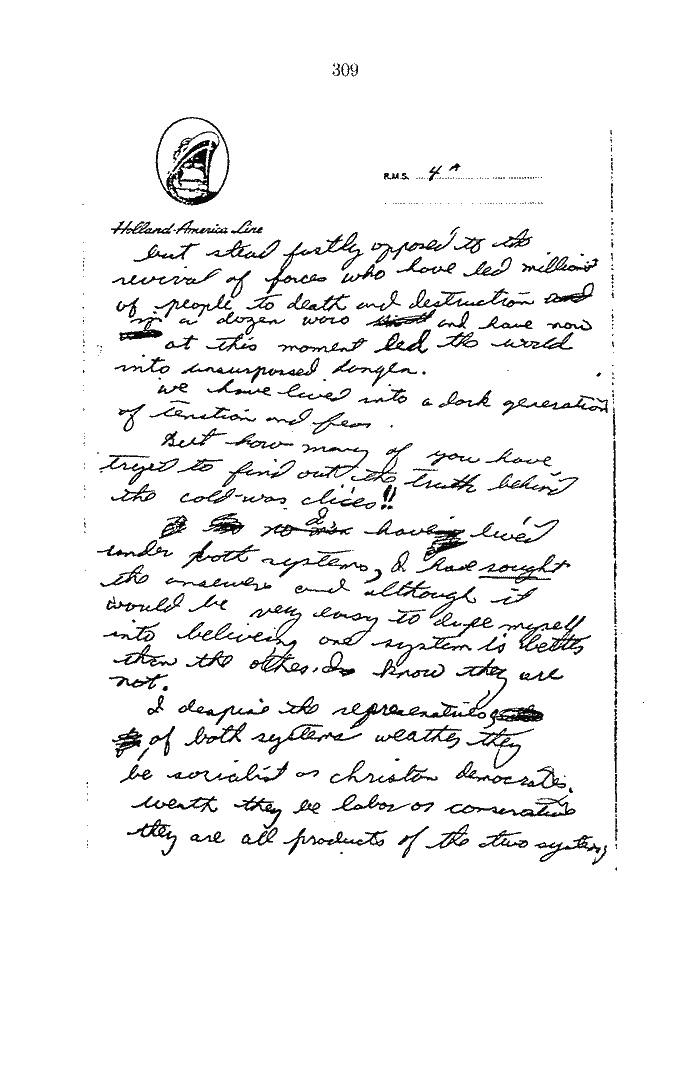 309
R.M.S. 4 A
Holland-America Line
but stead fastly opposed to the
revival of forces who have led millions
of people to death and destruction and
in a dozen wars and have now
at this moment led the world
into unsurpossed danger.
we have lived into a dark generation
of tenstion and fear.
But how many of you have
tryed to find out the truth behind
the cold-war clices!!
I have lived
under both systems, I have sought
the answers and although it
would be very easy to dupe myself
into beliveing one system is better
than the other. I know they are
not.
I despise the representatives
of both systems weather they
be socialist or christan democrates.
weath they be labor or conserative
they are all products of the two systems